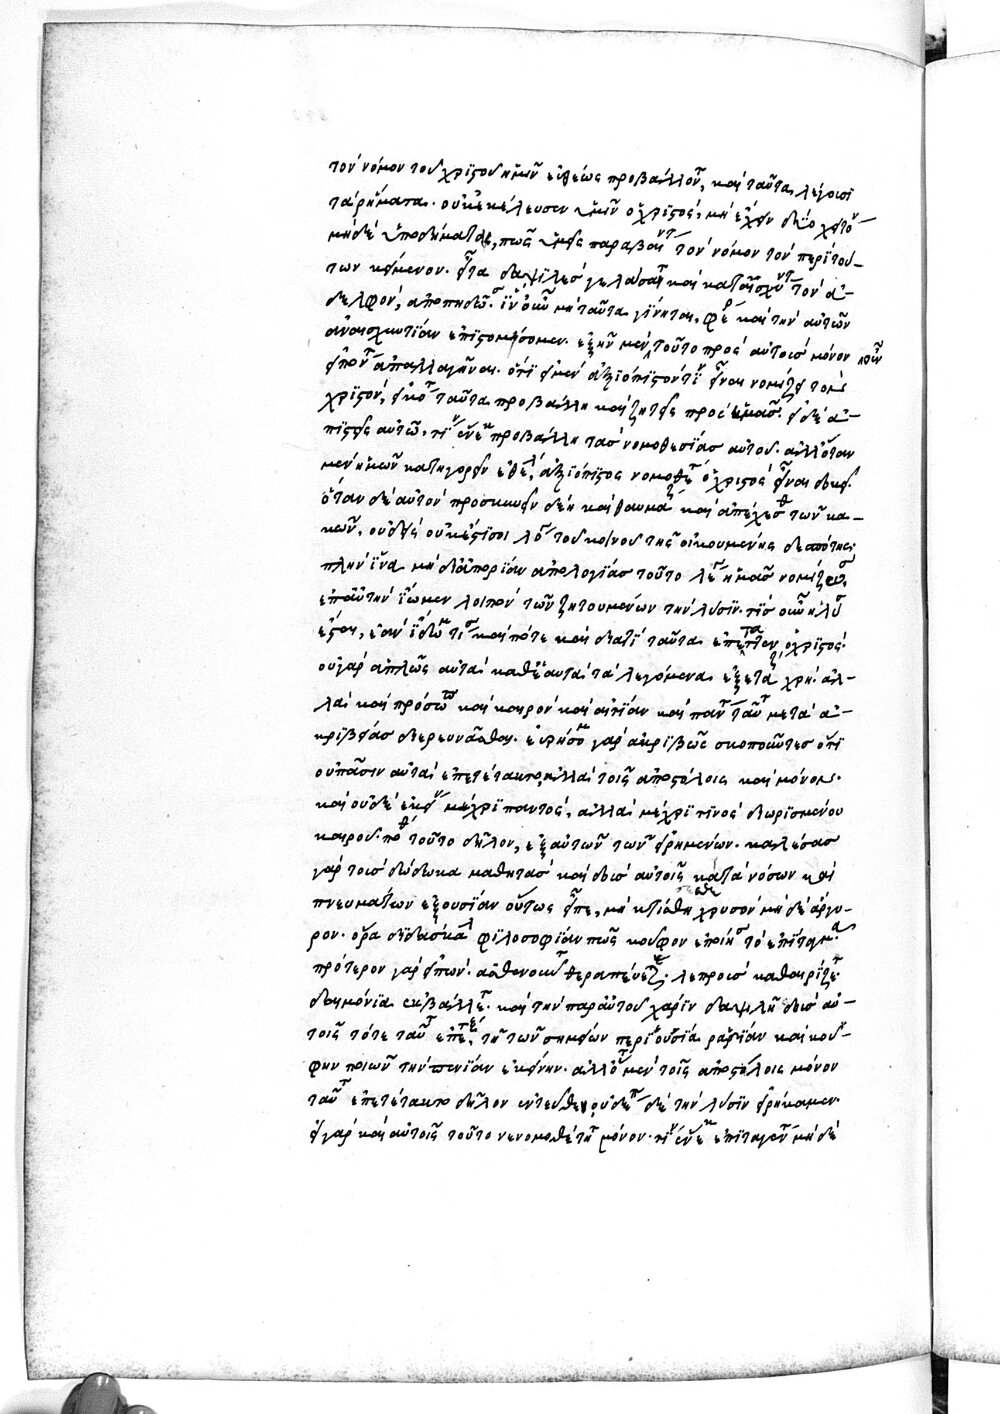 τὸν νόμον τοῦ χριστοῦ ἡμῖν εὐθέως προβάλλονται, καὶ ταῦτα λέγουσι
τὰ ῥήματα. οὐκ ἐκέλευσεν ὑμῖν ὁ χριστὸς, μὴ ἔχειν δύο χιτῶνας
μηδὲ ὑποδήματα, πῶς ὑμεῖς παραβαίνοντες τὸν νόμον τὸν περὶ τού-
των κείμενον. εἶτα δαψιλὲς γελάσαντες καὶ καταισχύναντες τὸν ἀ-
δελφὸν, ἀποπηδῶσιν. ἵν' οὖν μὴ ταῦτα γίνηται, φέρε καὶ τὴν αὐτῶν
ἀναισχυντίαν ἐπιστομίσωμεν. ἐξῆν μὲν τοῦτο πρὸς αὐτοὺς μόνον
εἰπόντας ἀπαλλαγῆναι. ὅτι εἰ μὲν ἀξιόπιστόν τι εἶναι νομίζεις τὸν
χριστὸν, εἰκότως ταῦτα προβάλλῃ καὶ ζητεῖς πρὸς ἡμᾶς. εἰ δὲ ἀ-
πιστεῖς αὐτῷ, τίνος ἕνεκεν προβάλλῃ τὰς νομοθεσίας αὐτοῦ. ἀλλ' ὅταν
μὲν ἡμῶν κατηγορεῖν ἐθέλῃς, ἀξιόπιστος νομοθέτης ὁ χριστὸς εἶναι δοκεῖ.
ὅταν δὲ αὐτὸν προσκυνεῖν δέῃ καὶ θαυμάζειν καὶ ἀπέχεσθαι τῶν κα-
κῶν, οὐδεὶς οὐκέτι σοι λόγος τοῦ κοινοῦ τῆς οἰκουμένης δεσπότου.
πλὴν ἵνα μὴ δι' ἀπορίαν ἀπολογίας τοῦτο λέγειν ἡμᾶς νομίζωσιν,
ἐπ' αὐτὴν ἴωμεν λοιπὸν τῶν ζητουμένων τὴν λύσιν. τίς οὖν ἡ λύσις
ἔσται, ἐὰν ἴδωμεν τίσι καὶ πότε καὶ διατί ταῦτα ἐπέταττεν ὁ χριστός.
οὐ γὰρ ἁπλῶς αὐτὰ καθ' ἑαυτὰ τὰ λεγόμενα ἐξετάζειν χρὴ. ἀλ-
λὰ καὶ πρόσωπον καὶ καιρὸν καὶ αἰτίαν καὶ πάντα ταῦτα μετὰ ἀ-
κριβείας διερευνᾶσθαι. εὑρήσομεν γὰρ ἀκριβῶς σκοποῦντες ὅτι
οὐ πᾶσιν αὐτὰ ἐπετέτακτο, ἀλλὰ τοῖς ἀποστόλοις καὶ μόνοις.
καὶ οὐδὲ ἐκείνοις μέχρι παντὸς, ἀλλὰ μέχρι τινὸς διωρισμένου
καιροῦ. πόθεν τοῦτο δῆλον, ἐξ αὐτῶν τῶν εἰρημένων. καλέσας
γὰρ τοὺς δώδεκα μαθητὰς καὶ δοὺς αὐτοῖς κατὰ νόσων καὶ
πνευμάτων ἐξουσίαν οὕτως εἶπε, μὴ κτᾶσθαι χρυσὸν μηδὲ ἄργυ-
ρον. ὅρα διδασκάλου φιλοσοφίαν πῶς κοῦφον ἐποίησε τὸ ἐπίταγμα
πρότερον γὰρ εἰπών. ἀσθενοῦντας θεραπεύετε. λεπροὺς καθαρίζετε.
δαιμόνια ἐκβάλλετε. καὶ τὴν παρ' αὐτοῦ χάριν δαψιλῆ δοὺς αὐ-
τοῖς τότε ταῦτα ἐπέταξε, τῇ τῶν σημείων περιουσίᾳ ῥᾳδίαν καὶ κού-
φην ποιῶν τὴν πενίαν ἐκείνην. ἀλλ' ὅτι μὲν τοῖς ἀποστόλοις μόνον
ταῦτα ἐπετέτακτο δῆλον ἐντεῦθεν, οὐδέπω δὲ τὴν λύσιν εἰρήκαμεν.
εἰ γὰρ καὶ αὐτοῖς τοῦτο νενομοθέτητο μόνον. τίνος ἕνεκεν ἐπιταγὲν μηδὲ